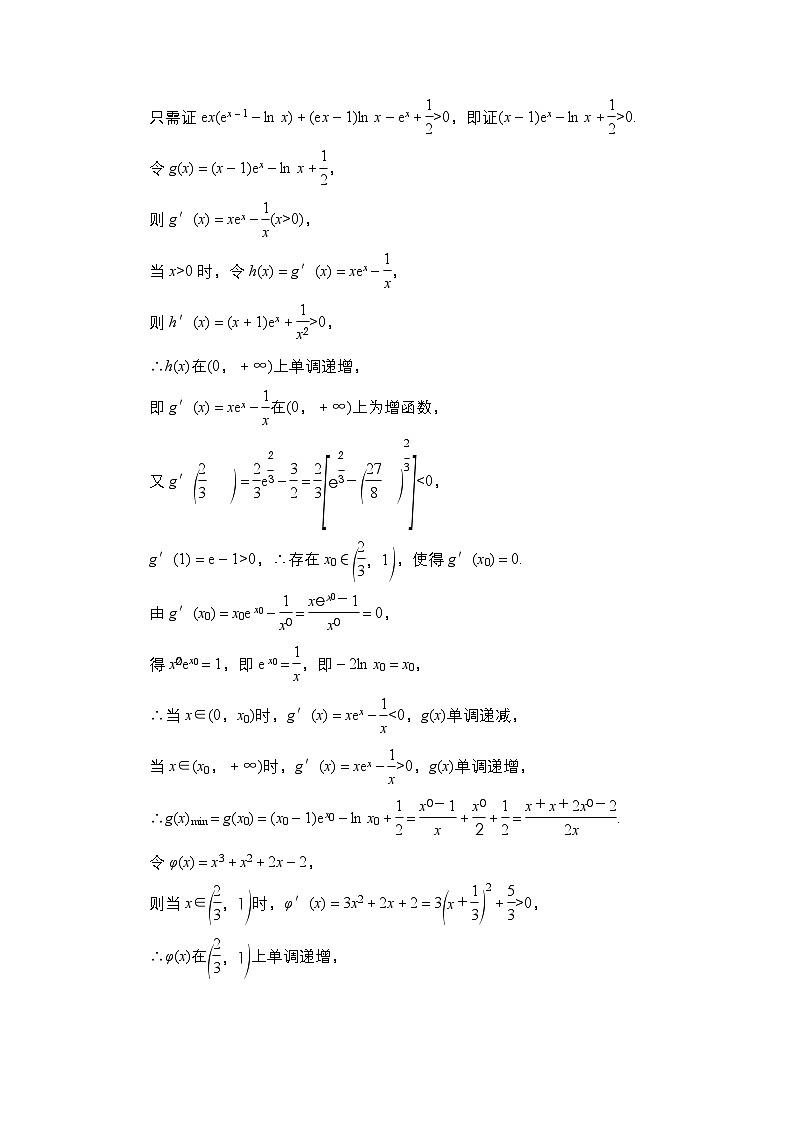 只需证 ex(eˣ⁻¹－ln x)＋(ex－1)ln x－eˣ＋1/2>0，即证(x－1)eˣ－ln x＋1/2>0.
令 g(x)＝(x－1)eˣ－ln x＋1/2，
则 g′(x)＝xeˣ－1/x(x>0)，
当 x>0 时，令 h(x)＝g′(x)＝xeˣ－1/x，
则 h′(x)＝(x＋1)eˣ＋1/x²>0，
∴h(x)在(0，＋∞)上单调递增，
即 g′(x)＝xeˣ－1/x在(0，＋∞)上为增函数，
又 g′(2/3)＝2/3e^(2/3)－3/2＝2/3[e^(2/3)－(27/8)^(2/3)]<0，
g′(1)＝e－1>0，∴存在 x₀∈(2/3，1)，使得 g′(x₀)＝0.
由 g′(x₀)＝x₀e^(x₀)－1/x0＝(xe^(x0)－1)/x0＝0，
得 x²₀e^(x₀)＝1，即 e^(x₀)＝1/x，即－2ln x₀＝x₀，
∴当 x∈(0，x₀)时，g′(x)＝xeˣ－1/x<0，g(x)单调递减，
当 x∈(x₀，＋∞)时，g′(x)＝xeˣ－1/x>0，g(x)单调递增，
∴g(x)min＝g(x₀)＝(x₀－1)e^(x₀)－ln x₀＋1/2＝(x0－1)/x＋x0/2＋1/2＝(x＋x＋2x0－2)/2x.
令 φ(x)＝x³＋x²＋2x－2，
则当 x∈(2/3，1)时，φ′(x)＝3x²＋2x＋2＝3(x＋1/3)²＋5/3>0，
∴φ(x)在(2/3，1)上单调递增，